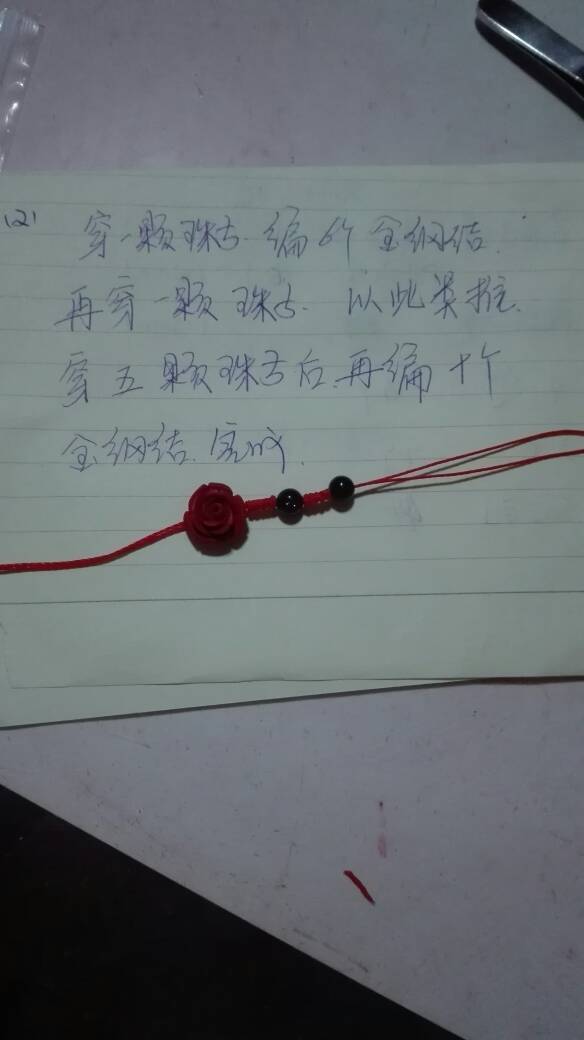 (2) 穿一颗珠子.编6个金钢结.
再穿一颗珠子.以此类推.
穿五颗珠子后.再编十个
金钢结.完成.